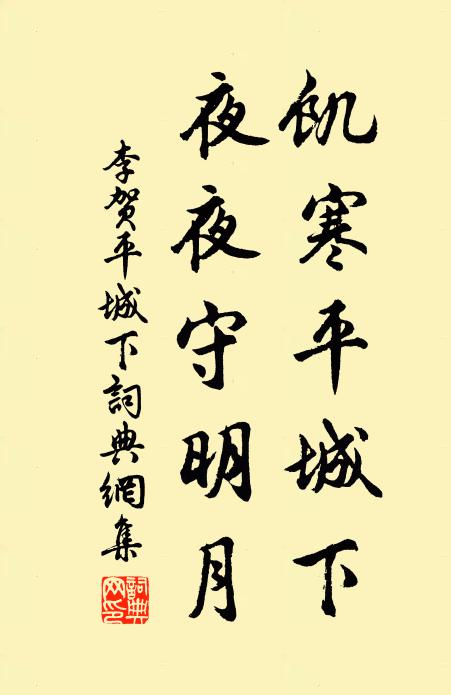 飢寒平城下
夜夜守明月
李賀平城下詞典網集
詞典
网印